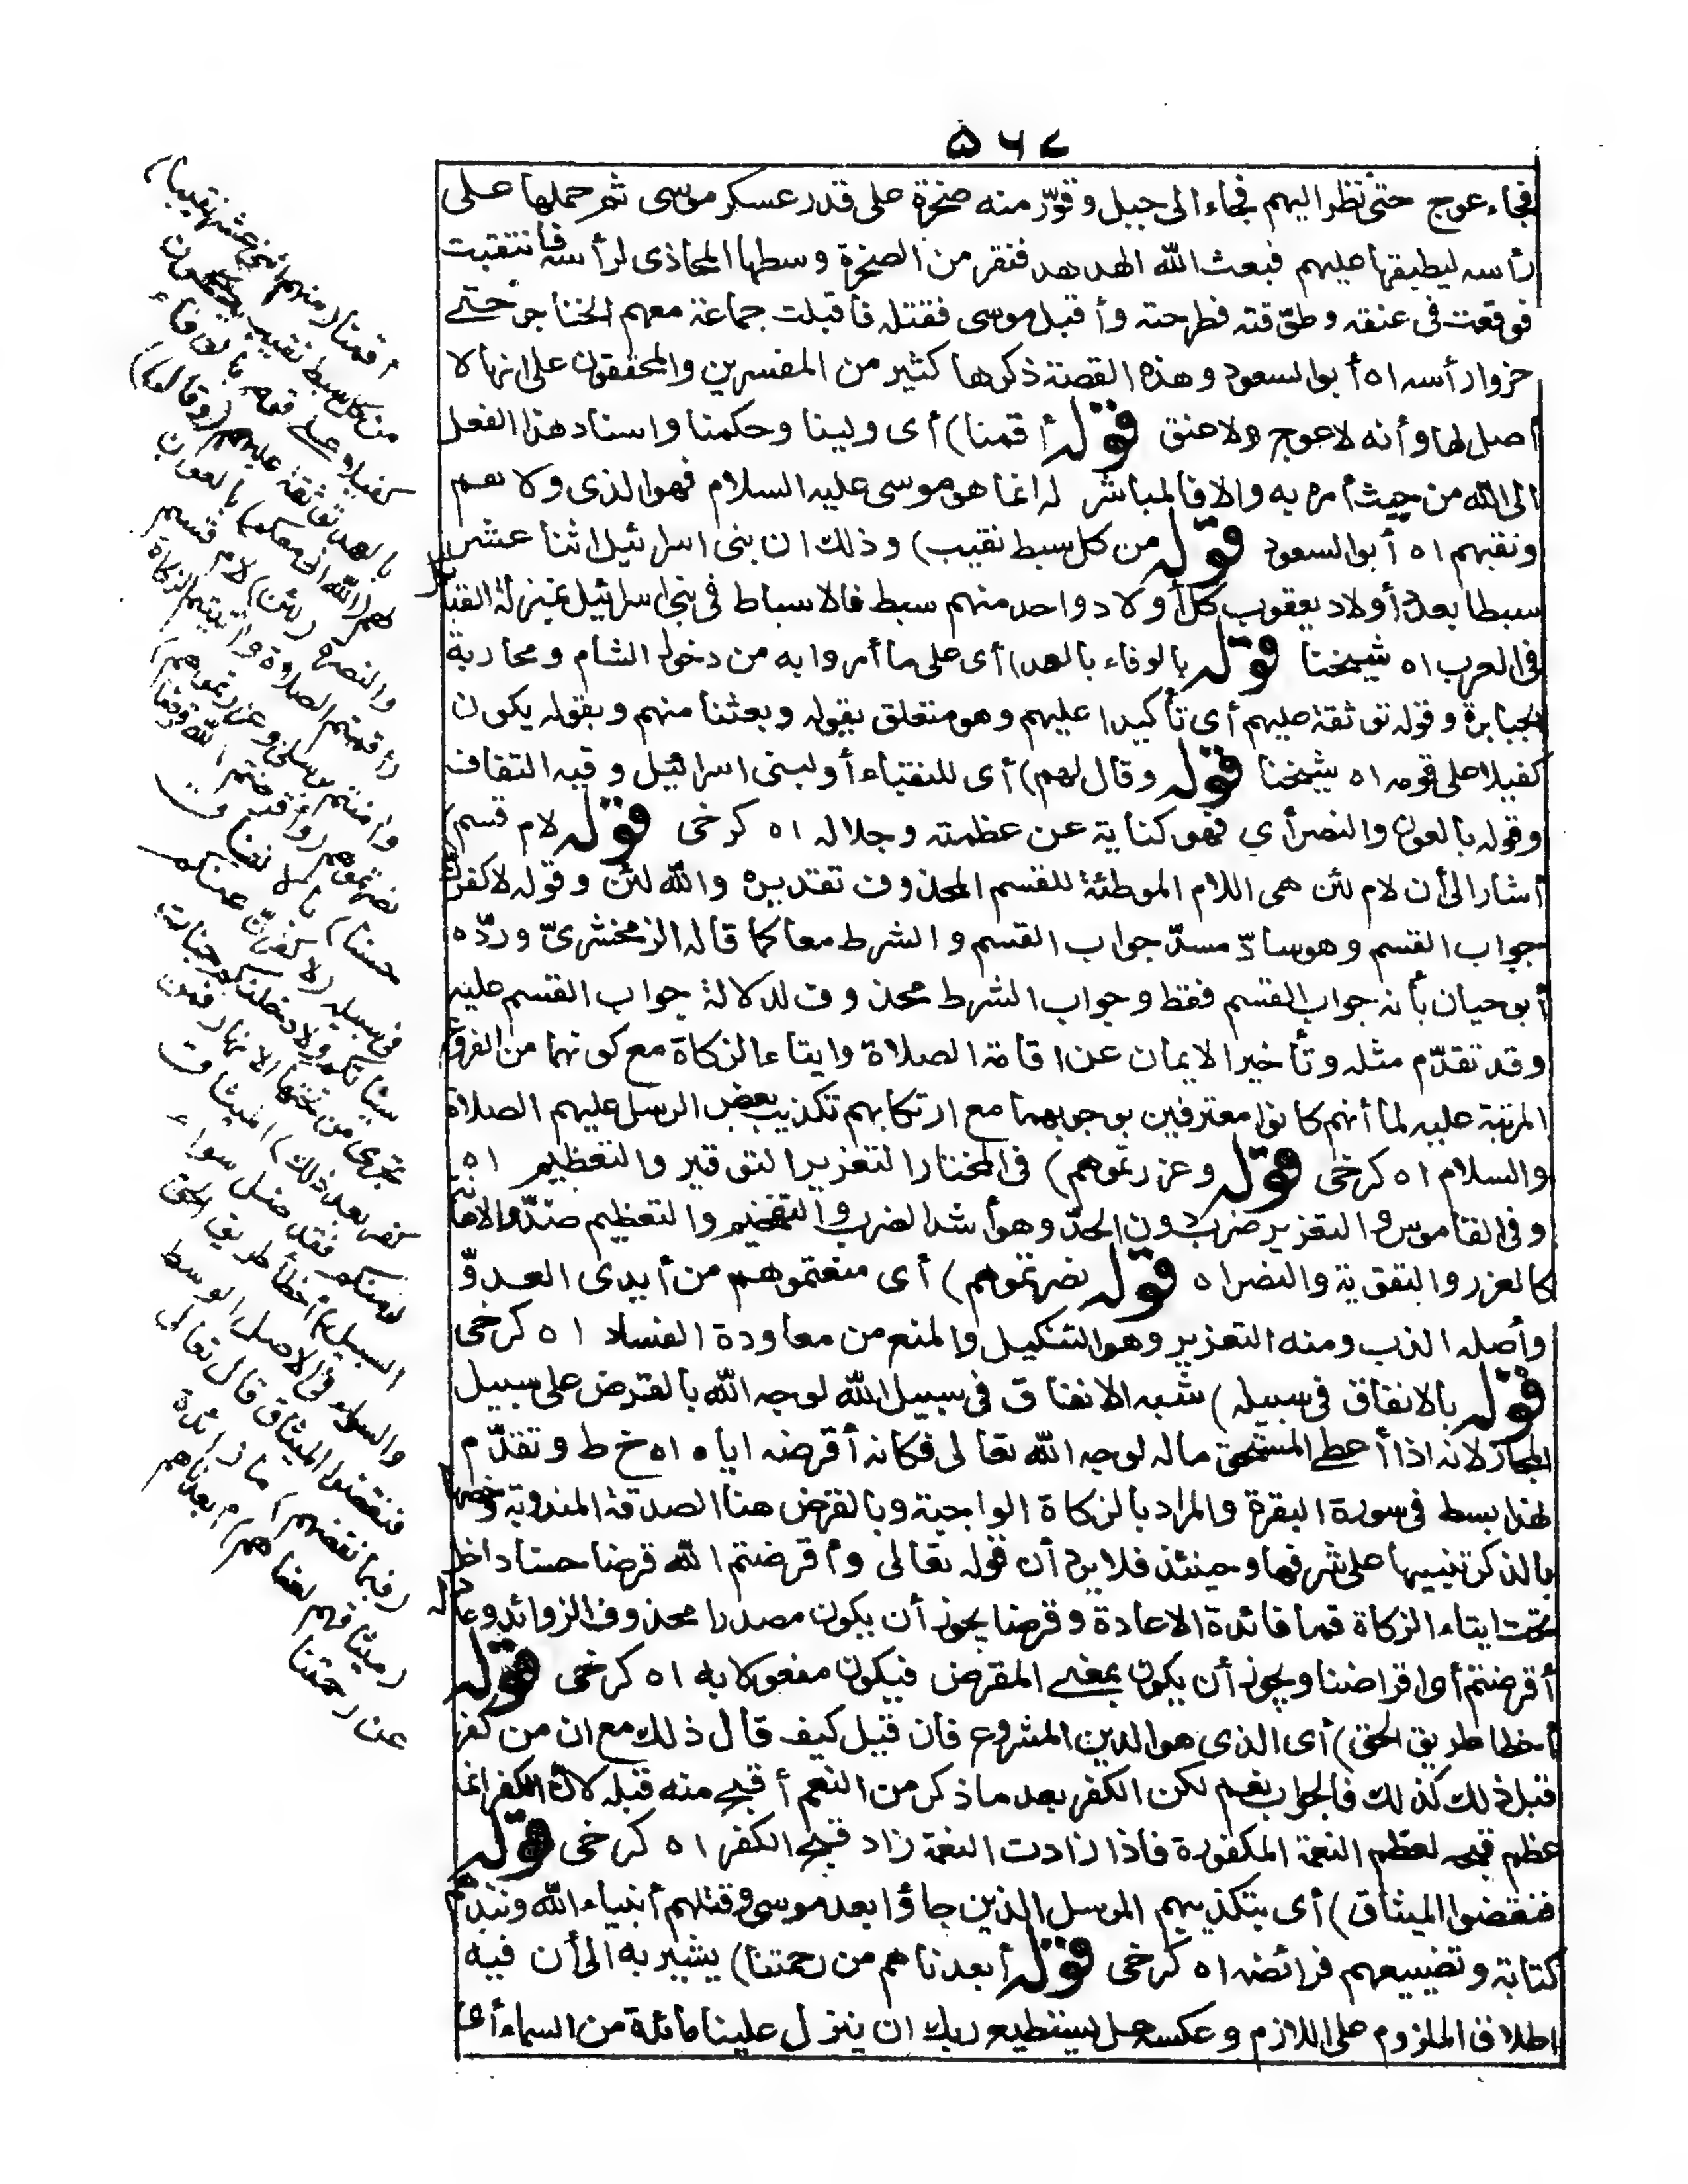 ۵۶۷
فجاء عوج حتى نظر اليهم فجاء الى جبل وقوّر منه صخرة على قدر عسكر موسى ثم حملها على
رأسه ليطبقها عليهم فبعث الله الهدهد فنقر من الصخرة وسطها المحاذى لرأسه فانتقبت
فوقعت فى عنقه وطوّقته فطرحته وأقبل موسى فقتله فأقبلت جماعة معهم الخناجر حتى
حزوا رأسه اه أبو السعود وهذه القصة ذكرها كثير من المفسرين والمحققون على انها لا
أصل لها وأنه لا عوج ولا عنق قوله أقمنا) أى ولينا وحكمنا واسناد هذا الفعل
الى الله من حيث أمره به والا فالمباشر له انما هو موسى عليه السلام فهو الذى ولاهم
ونقبهم اه أبو السعود قوله من كل سبط نقيب) وذلك ان بنى اسرائيل اثنا عشر
سبطا بعدد أولاد يعقوب كل أولاد واحد منهم سبط فالاسباط فى بنى اسرائيل بمنزلة القبائل
فى العرب اه شيخنا قوله بالوفاء بالعهد) أى على ما أمروا به من دخول الشام ومحاربة
الجبابرة وقوله توثقة عليهم أى تأكيدا عليهم وهو متعلق بقوله وبعثنا منهم وبقوله يكون
كفيلا على قومه اه شيخنا قوله وقال لهم) أى للنقباء أو لبنى اسرائيل وفيه التفات
وقوله بالعون والنصر أى فهو كناية عن عظمته وجلاله اه كرخى قوله لام قسم)
أشار الى أن لام لئن هى اللام الموطئة للقسم المحذوف تقديره والله لئن وقوله لاكفرن
جواب القسم وهو سادّ مسدّ جواب القسم والشرط معا كما قاله الزمخشرىّ وردّه
أبو حيان بأنه جواب القسم فقط وجواب الشرط محذوف لدلالة جواب القسم عليه
وقد تقدّم مثله وتأخير الايمان عن اقامة الصلاة وايتاء الزكاة مع كونهما من الفروع
المرتبة عليه لما أنهم كانوا معترفين بوجوبهما مع ارتكابهم تكذيب بعض الرسل عليهم الصلاة
والسلام اه كرخى قوله وعزرتموهم) فى المختار التعزير التوقير والتعظيم اه
وفى القاموس والتعزير ضرب دون الحدّ وهو أشد الضرب والتفخيم والتعظيم ضدّ والاعانة
كالعزر والتقوية والنصر اه قوله نصرتموهم) أى منعتموهم من أيدى العدوّ
وأصله الذب ومنه التعزير وهو التنكيل والمنع من معاودة الفساد اه كرخى
قوله بالانفاق فى سبيله) شبه الانفاق فى سبيل الله لوجه الله بالقرض على سبيل
المجاز لانه اذا أعطى المستحق ماله لوجه الله تعالى فكانه أقرضه اياه اه خ ط وتقدّم
لهذا بسط فى سورة البقرة والمراد بالزكاة الواجبة وبالقرض هنا الصدقة المندوبة وخصها
بالذكر تنبيها على شرفها وحينئذ فلا يرد أن قوله تعالى وأقرضتم الله قرضا حسنا داخل
تحت ايتاء الزكاة فما فائدة الاعادة وقرضا يجوز أن يكون مصدرا محذوف الزوائد وعامله
أقرضتم أى اقراضا ويجوز أن يكون بمعنى المقرض فيكون مفعولا به اه كرخى قوله
أخطأ طريق الحق) أى الذى هو الدين المشروع فان قيل كيف قال ذلك مع ان من كفر
قبل ذلك كذلك فالجواب نعم لكن الكفر بعد ما ذكر من النعم أقبح منه قبله لان الكفر انما
عظم قبحه لعظم النعمة المكفورة فاذا زادت النعمة زاد قبح الكفر اه كرخى قوله
فنقضوا الميثاق) أى بتكذيبهم الرسل الذين جاؤا بعد موسى وقتلهم أنبياء الله ونبذهم
كتابه وتضييعهم فرائضه اه كرخى قوله أبعدناهم من رحمتنا) يشير به الى أن فيه
اطلاق الملزوم على اللازم وعكسه هل يستطيع ربك ان ينزل علينا مائدة من السماء أى
أقمنا (منهم اثنى عشر نقيبا)
من كل سبط نقيب يكون
كفيلا على قومه بالوفاء
بالعهد توثقة عليهم (وقال)
لهم (الله انى معكم) بالعون
والنصر (لئن) لام قسم
(أقمتم الصلاة وآتيتم الزكاة
وآمنتم برسلى وعزرتموهم)
نصرتموهم (وأقرضتم الله قرضا
حسنا) بالانفاق
فى سبيله (لاكفرنّ عنكم
سيئاتكم ولادخلنكم جنات
تجرى من تحتها الانهار فمن
كفر بعد ذلك) الميثاق
(منكم فقد ضل سواء
السبيل) أخطأ طريق الحق
والسواء فى الاصل الوسط
فنقضوا الميثاق قال تعالى
(فبما نقضهم) ما زائدة
(ميثاقهم لعناهم) أبعدناهم
عن رحمتنا